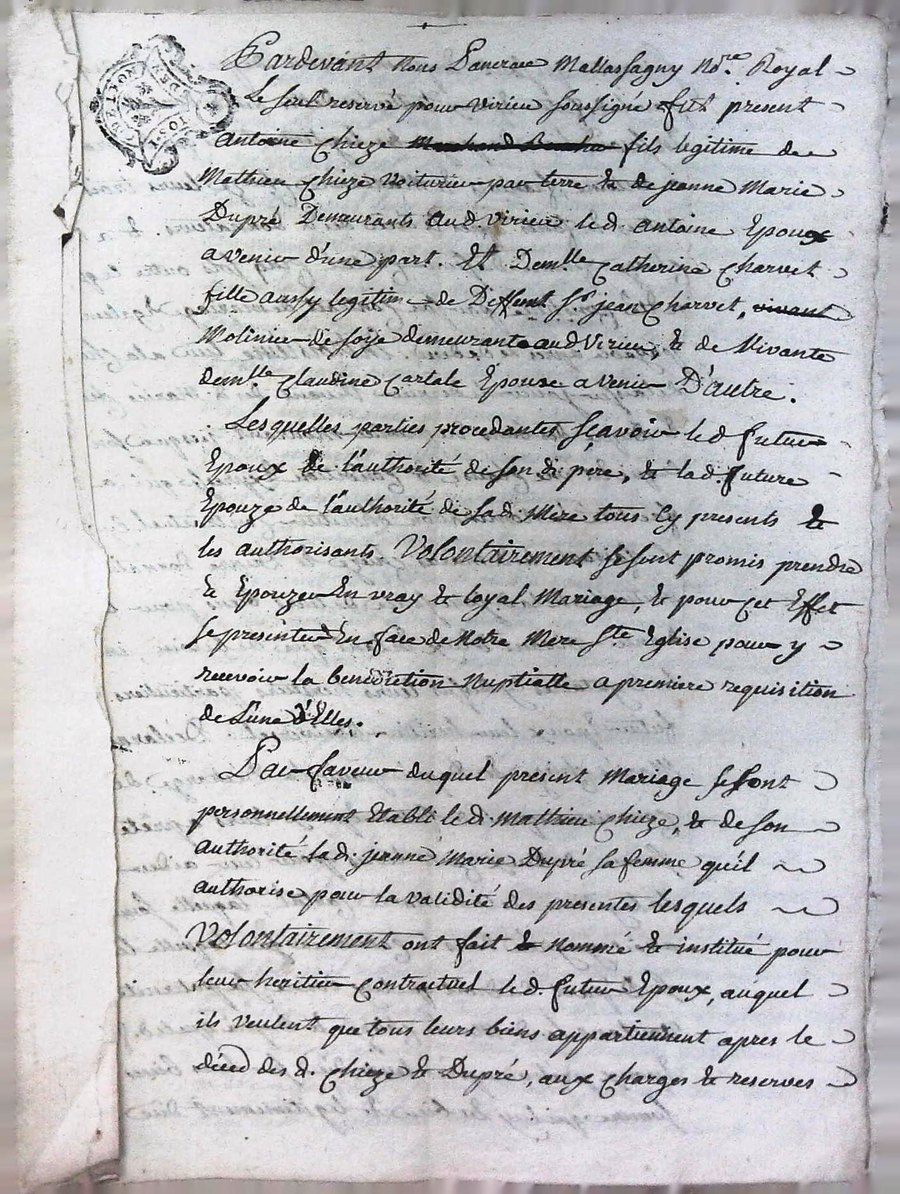 Pardevant Nous Pancrace Mallassagny No.re Royal
Le seul reservé pour Virieu soussigné fut present
antoine Chieze Marchand fils legitime de
Mathieu Chieze Voiturier par terre & de jeanne Marie
Dupré Demeurants aud. Virieu led. antoine Epoux
avenir d'une part. Et Dem.lle Catherine Charvet
fille aussy legitime de Deffunt Sr jean Charvet, vivant
Molinier de soije demeurante aud. Virieu, & de Vivante
dem.lle Claudine Cartale Epouse avenir D'autre.
Lesquelles parties procedantes sçavoir led. futur
Epoux de l'authorité de son d. père, & lad. future
Epouze de l'authorité de sad. Mere tous Cy presents &
les authorisants Volontairement se sont promis prendre
& Epouzer En vray & loyal Mariage, & pour cet Effet
se presenter En face de Notre Mere Ste Eglise pour y
recevoir la benediction Nuptialle a premiere requisition
de L'une d'Elles.
Par faveur duquel present Mariage se sont
personnellement Etabli led. Mathieu Chieze, & de son
authorité lad. jeanne Marie Dupré sa femme qu'il
authorise pour la validité des presentes lesquels
Volontairement ont fait & nommé & institué pour
leur heritier Contractuel led. futur Epoux, auquel
ils veulent que tous leurs biens appartiennent apres le
déced des d. Chieze & Dupré, aux Charges & reserves